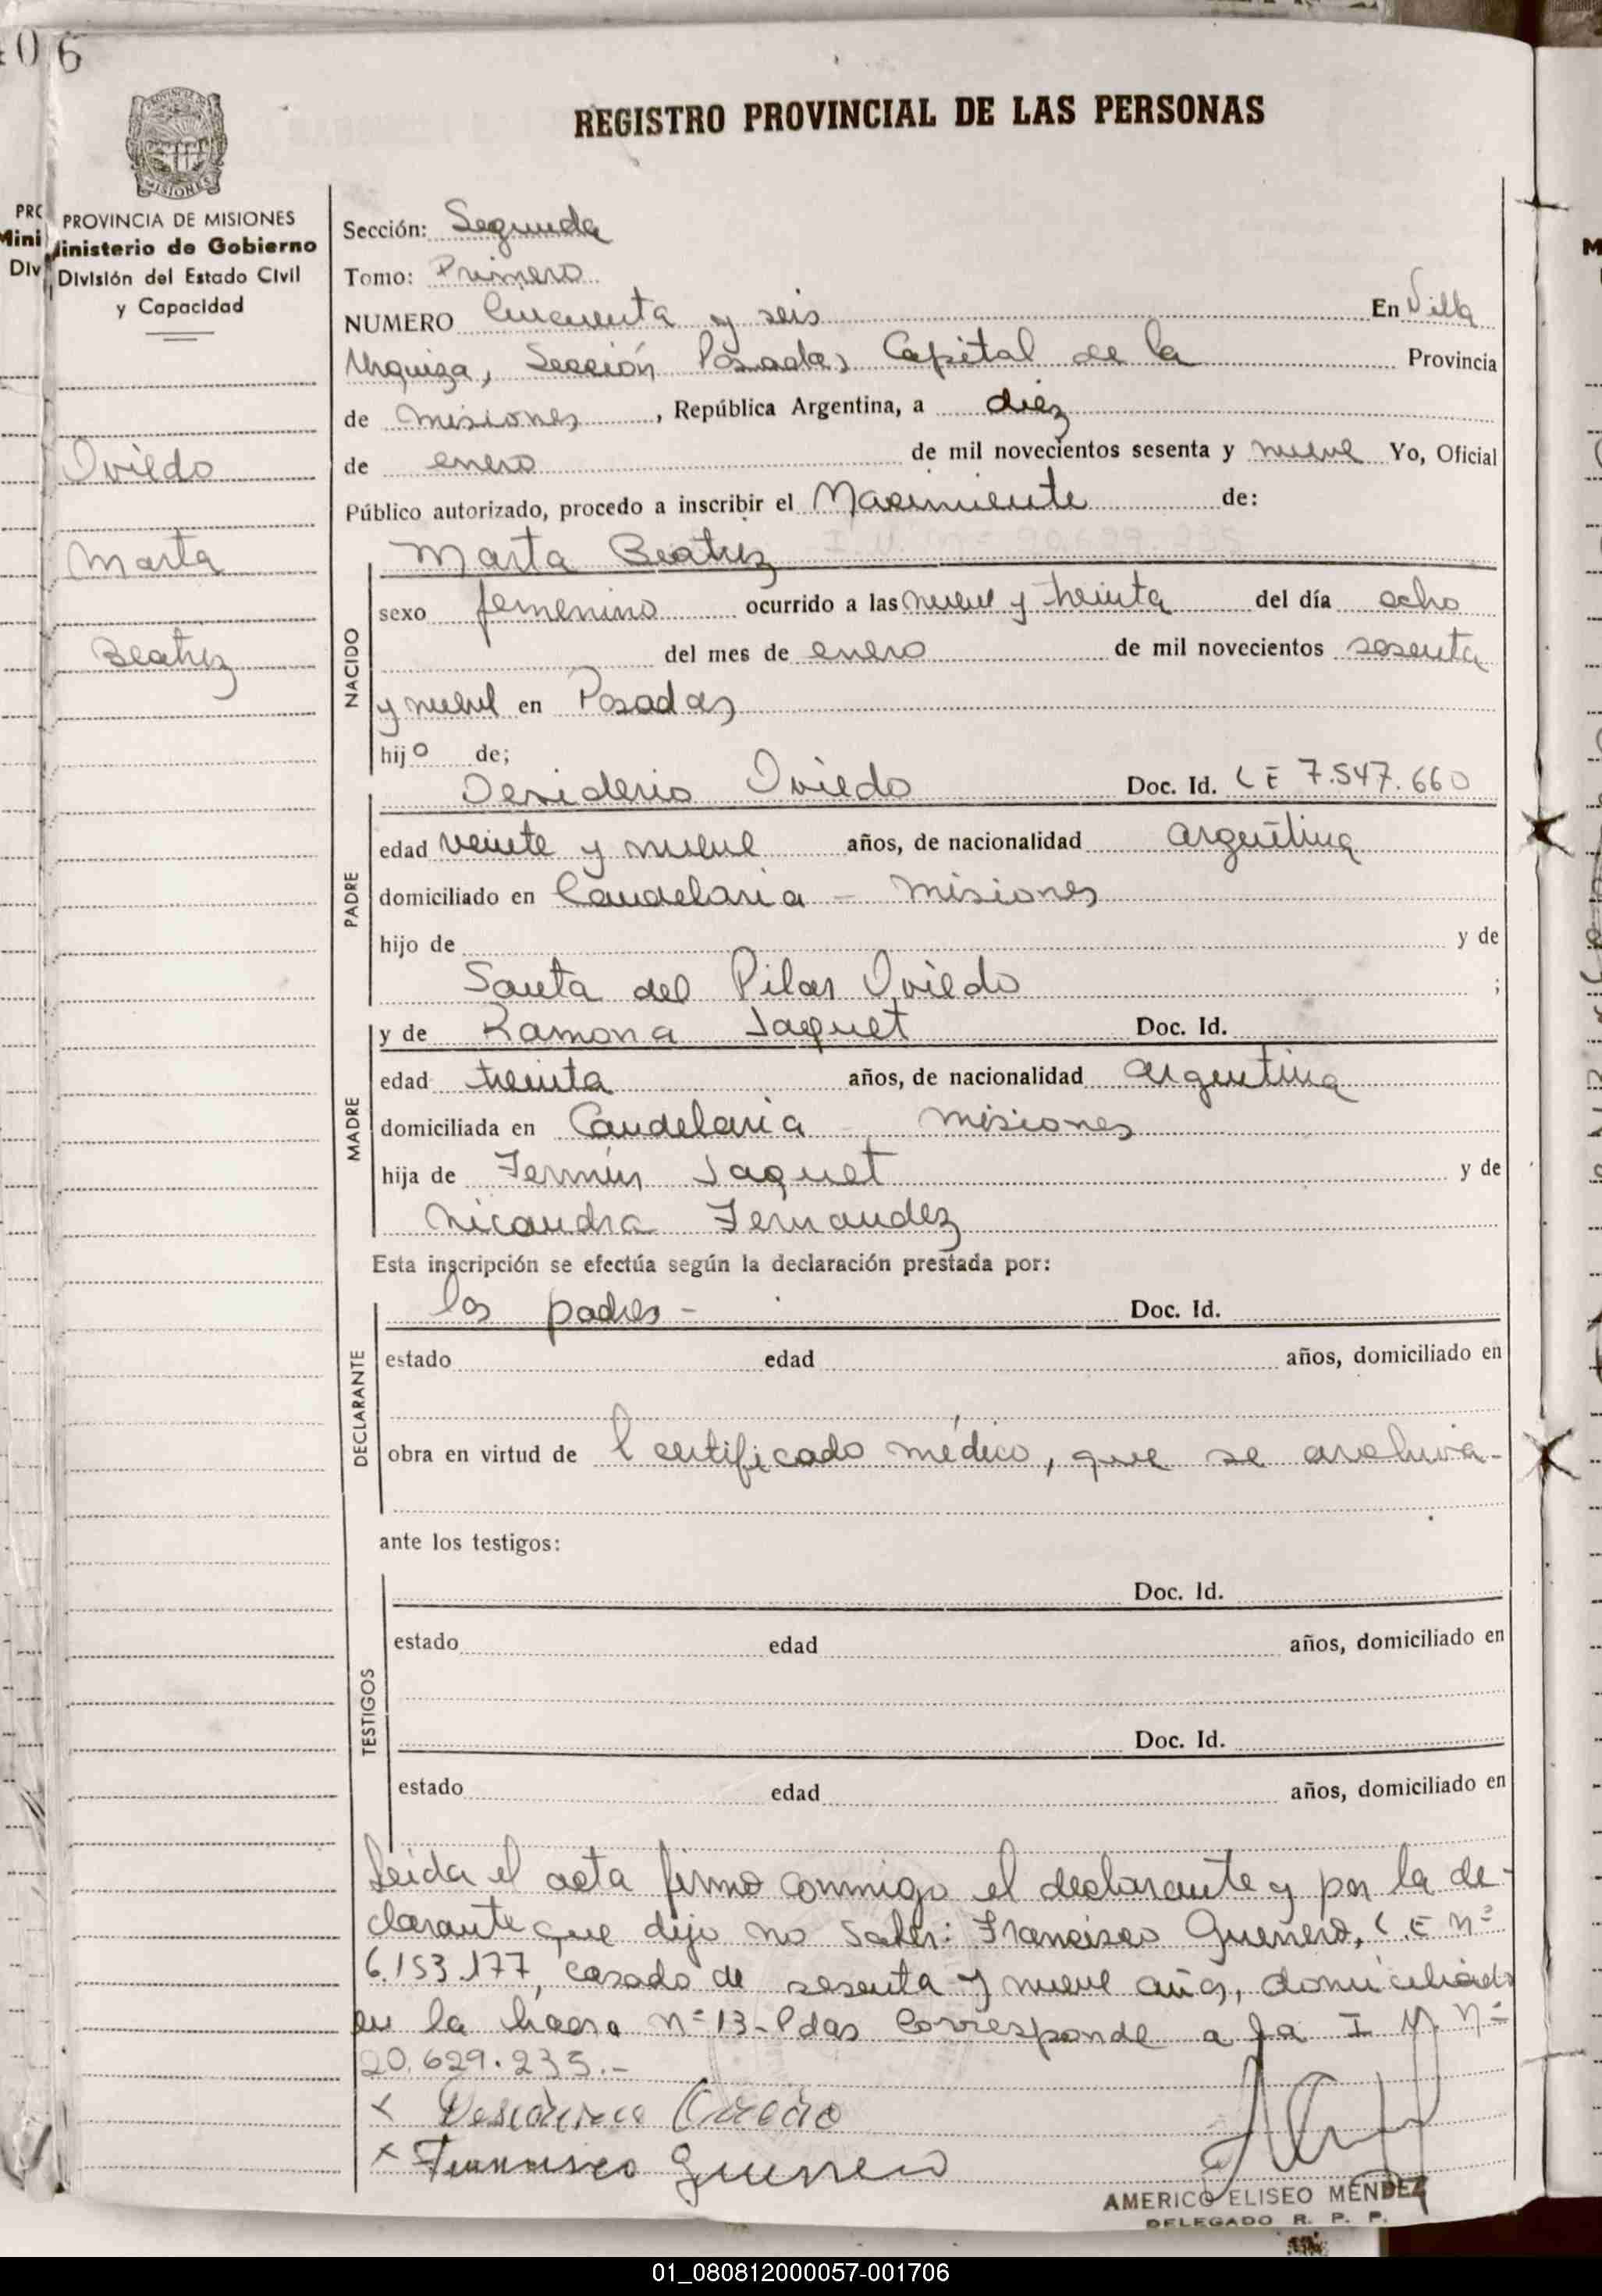 06
REGISTRO PROVINCIAL DE LAS PERSONAS
MISIONES
PROVINCIA DE MISIONES
Ministerio de Gobierno
División del Estado Civil
y Capacidad
Oviedo
Marta
Beatriz
Sección: Segunda
Tomo: Primero
NUMERO Cincuenta y seis En Villa
Urquiza, Sección Posadas Capital de la Provincia
de Misiones, República Argentina, a diez
de enero de mil novecientos sesenta y nueve Yo, Oficial
Público autorizado, procedo a inscribir el Nacimiento de:
NACIDO
Marta Beatriz
sexo femenino ocurrido a las nueve y treinta del día ocho
del mes de enero de mil novecientos sesenta
y nueve en Posadas
hijo de;
PADRE
Desiderio Oviedo Doc. Id. C E 7.547.660
edad veinte y nueve años, de nacionalidad argentina
domiciliado en Candelaria - Misiones
hijo de y de
Santa del Pilar Oviedo ;
MADRE
y de Ramona Jaquet Doc. Id.
edad treinta años, de nacionalidad argentina
domiciliada en Candelaria Misiones
hija de Fermín Jaquet y de
Nicandra Fernandez
Esta inscripción se efectúa según la declaración prestada por:
DECLARANTE
los padres - Doc. Id.
estado edad años, domiciliado en
obra en virtud de l certificado médico, que se archiva-
ante los testigos:
TESTIGOS
Doc. Id.
estado edad años, domiciliado en
Doc. Id.
estado edad años, domiciliado en
Leida el acta firmo conmigo el declarante y por la de-
clarante que dijo no saber: Francisco Guerrero, C.E nº
6.153.177, casado de sesenta y nueve años, domiciliado
en la chacra nº 13-Pdas Corresponde a la I M nº
20.629.235.-
x Desiderio Oviedo
x Francisco Guerrero
AMERICO ELISEO MÉNDEZ
DELEGADO R. P. P.
01_080812000057-001706